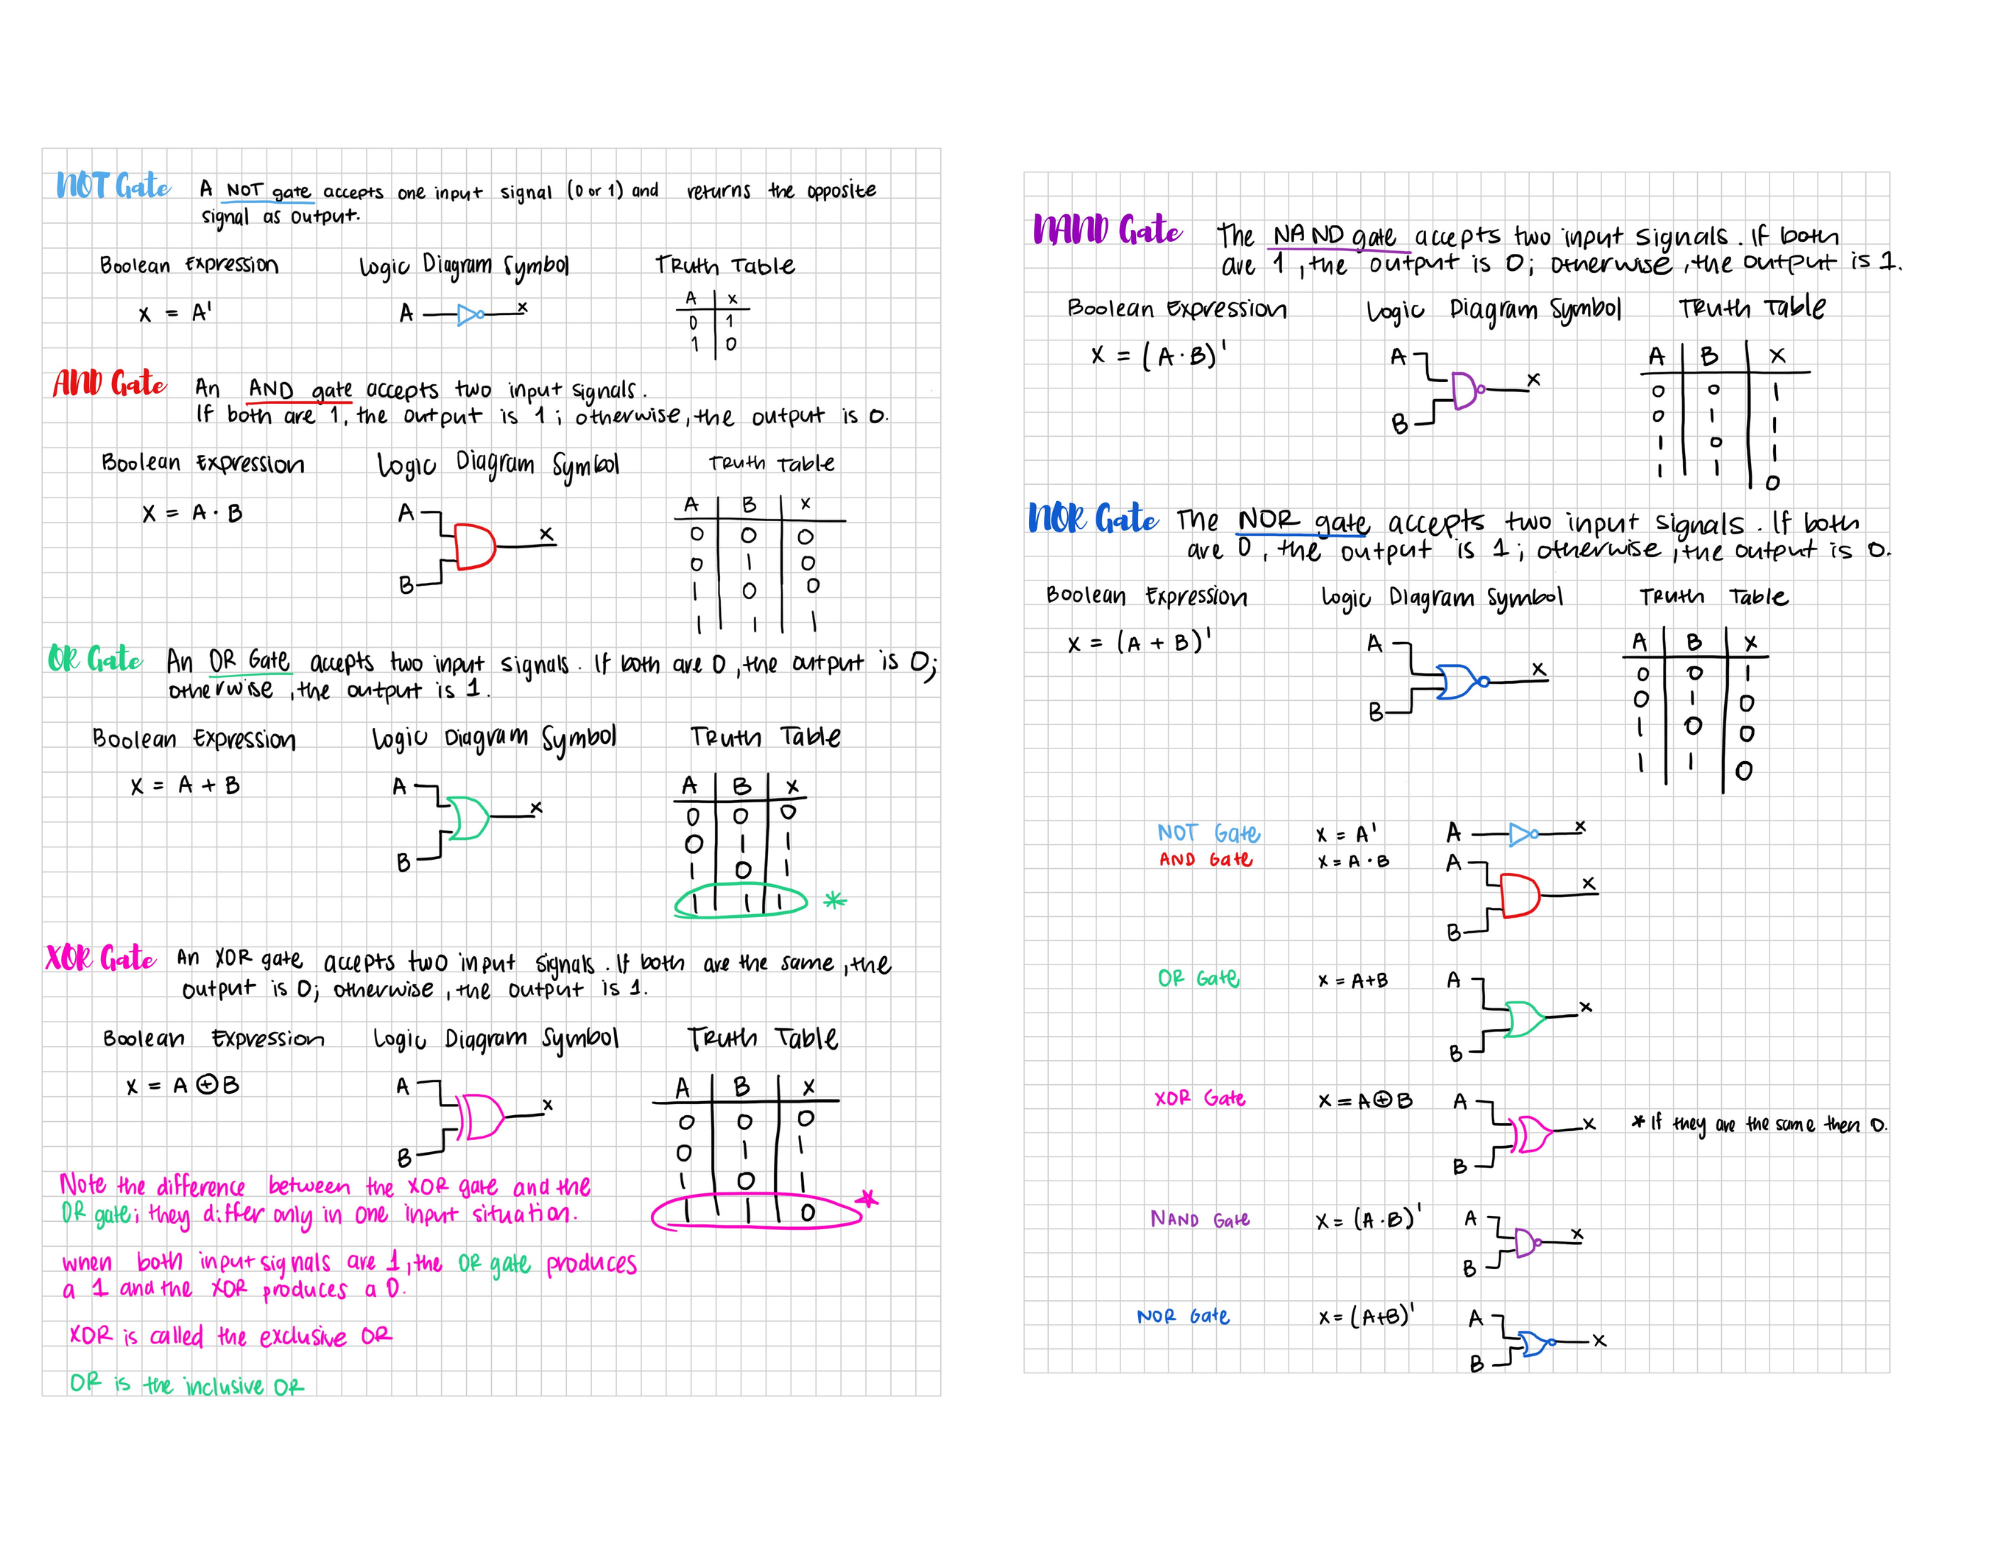 NOT Gate A NOT gate accepts one input signal (0 or 1) and returns the opposite
signal as output.
Boolean Expression Logic Diagram Symbol Truth Table
X = A' A x
A X
0 1
1 0
AND Gate An AND gate accepts two input signals.
If both are 1, the output is 1; otherwise, the output is 0.
Boolean Expression Logic Diagram Symbol Truth Table
X = A · B A B X
A B X
0 0 0
0 1 0
1 0 0
1 1 1
OR Gate An OR Gate accepts two input signals. If both are 0, the output is 0;
otherwise, the output is 1.
Boolean Expression Logic Diagram Symbol Truth Table
X = A + B A B X
A B X
0 0 0
0 1 1
1 0 1
1 1 1 *
XOR Gate An XOR gate accepts two input signals. If both are the same, the
output is 0; otherwise, the output is 1.
Boolean Expression Logic Diagram Symbol Truth Table
X = A ⊕ B A B X
A B X
0 0 0
0 1 1
1 0 1
1 1 0 ★
Note the difference between the XOR gate and the
OR gate; they differ only in one input situation.
when both input signals are 1, the OR gate produces
a 1 and the XOR produces a 0.
XOR is called the exclusive OR
OR is the inclusive OR
NAND Gate The NAND gate accepts two input signals. If both
are 1, the output is 0; otherwise, the output is 1.
Boolean Expression Logic Diagram Symbol Truth Table
X = (A · B)' A B X
A B X
0 0 1
0 1 1
1 0 1
1 1 0
NOR Gate The NOR gate accepts two input signals. If both
are 0, the output is 1; otherwise, the output is 0.
Boolean Expression Logic Diagram Symbol Truth Table
X = (A + B)' A B X
A B X
0 0 1
0 1 0
1 0 0
1 1 0
NOT Gate X = A' A X
AND Gate X = A · B A B X
OR Gate X = A+B A B X
XOR Gate X = A ⊕ B A B X * If they are the same then 0.
NAND Gate X = (A · B)' A B X
NOR Gate X = (A+B)' A B X